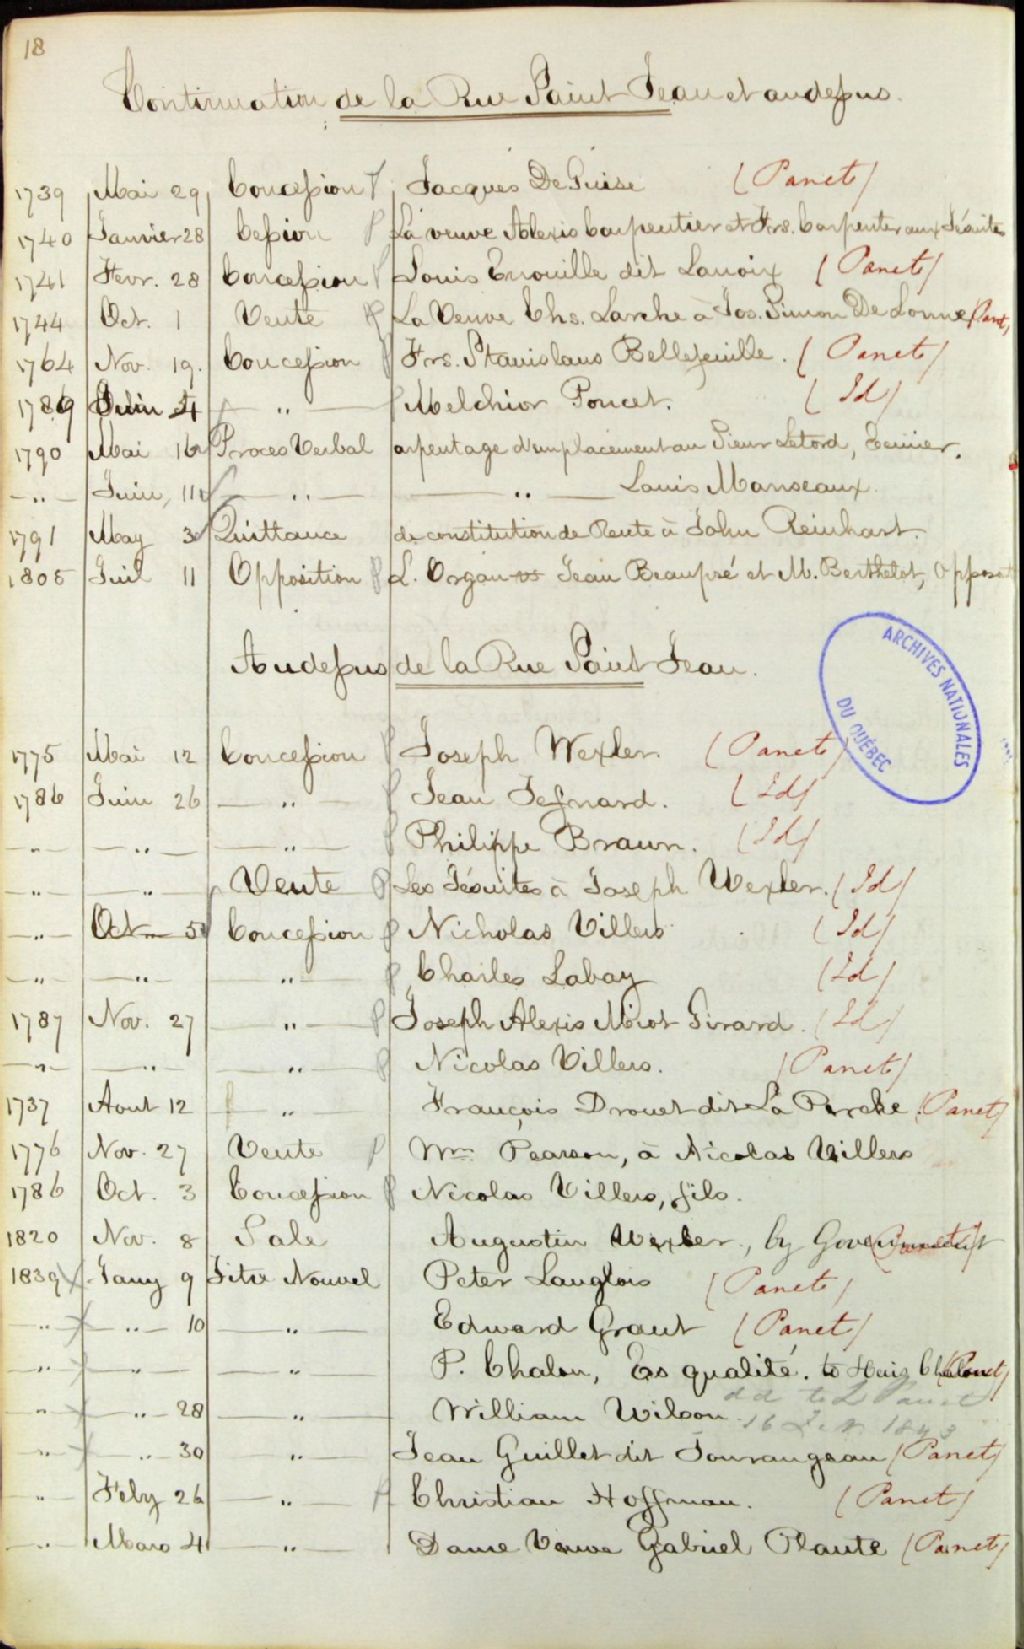 18
Continuation de la Rue Saint Jean et audessus.
1739 Mai 29 Concession Jacques De Guise (Panet)
1740 Janvier 28 Cession La veuve Alexis Carpentier et Frs. Carpentier aux Jésuites
1741 Fevr. 28 Concession Louis Enouille dit Lanoix (Panet)
1744 Oct. 1 Vente La Veuve Chs. Larche à Jos. Simon De Lorme (Panet)
1764 Nov. 19. Concession Frs. Stanislaus Bellefeuille. (Panet)
1789 Juin 4 — " — Melchior Poncet. (Id)
1790 Mai 16 Proces Verbal arpentage d'emplacement au Sieur Letord, Teinier.
— " — Juin, 11 — " — — " — Louis Manseaux.
1791 May 3 Quittance de constitution de Rente à John Reinhart.
1805 Juil 11 Opposition L. Organ vs Jean Beaupré et M. Berthelot, Opposant
Audessus de la Rue Saint Jean.
ARCHIVES NATIONALES
DU QUÉBEC
1775 Mai 12 Concession Joseph Wexler (Panet)
1786 Juin 26 — " — Jean Jegnard. (Id)
— " — — " — — " — Philippe Braun. (Id)
— " — — " — Vente Les Jésuites à Joseph Wexler. (Id)
— " — Oct — 5 Concession Nicholas Villers (Id)
— " — — " — " Charles Labay (Id)
1787 Nov. 27 — " — Joseph Alexis Miot Girard. (Id)
— " — — " — " Nicolas Villers. (Panet)
1737 Aout 12 " François Drouet dit La Perche (Panet)
1776 Nov. 27 Vente Wm Pearson, à Nicolas Villers
1786 Oct. 3 Concession Nicolas Villers, fils.
1820 Nov. 8 Sale Augustin Wexler, by Government (Panet)
1839 Jany 9 Titre Nouvel Peter Langlois (Panet)
— " — — " — 10 — " — Edward Grant (Panet)
— " — — " — " P. Chalou, Es qualité. to Chalou (Panet)
— " — — " — 28 — " — William Wilson
— " — — " — 30 " Jean Guillet dit Tourangeau (Panet)
" Feby 26 — " — Christian Hoffman. (Panet)
— " — Mars 4 — " — Dame Veuve Gabriel Plante (Panet)